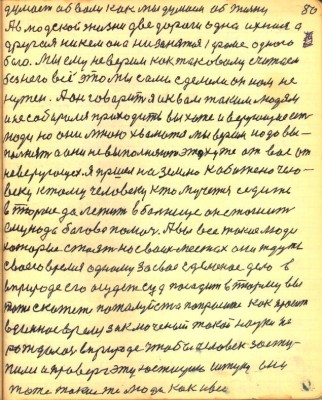 думает об вам как мы думаем об жизни 80
А в людской жизни две дороги одна их них а
другая никем она ни занятя кроме одного
бога. Мы ему не верим как таковому считаем
без него всё это мы сами сделали он нам не
нужен. А он говорит я и к вам таким людям
не собирался приходить вы хоть и верующие есть
люди но они много хвалются мы верим надо вы-
полнять а они не выполняют это хуже от вас от
неверующих я пришел на землю к обиженому чело-
веку к тому человеку кто мучется седит
в тюрьме да лежит в больнице он стонет
ему надо богова помоч. А вы все такие люди
которые стоят на своих местах они ждуть
своего время одному за свое сделаное дело в
природе его ждет суд посадит в тюрьму вы
тоже скажите пожалуйста попрашше как просит
в данное время заключеный такой науки не
рождалось в природе чтобы человек засту-
пили и провергэту юстицию
тоже такие же люди как и все